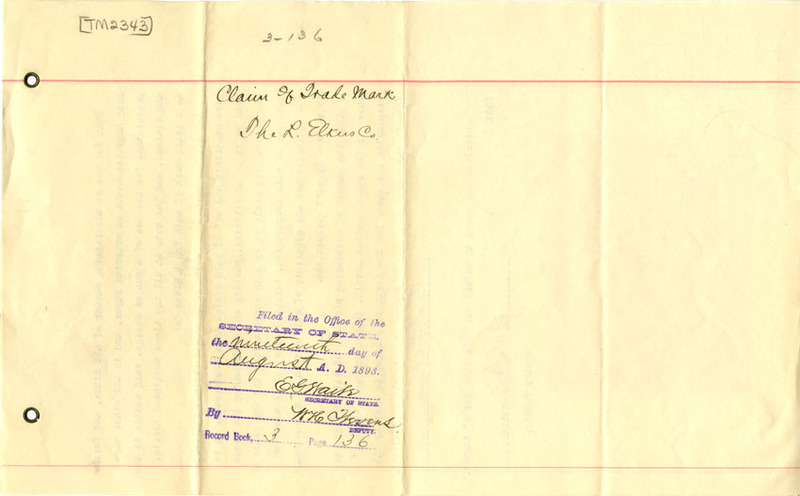 [TM2343]
3-136
Claim of Trade Mark
The L. Elkus Co.
Filed in the Office of the
SECRETARY OF STATE
the nineteenth day of
August A. D. 1893.
E G Waite
SECRETARY OF STATE
By
DEPUTY.
Record Book, 3 Page 136